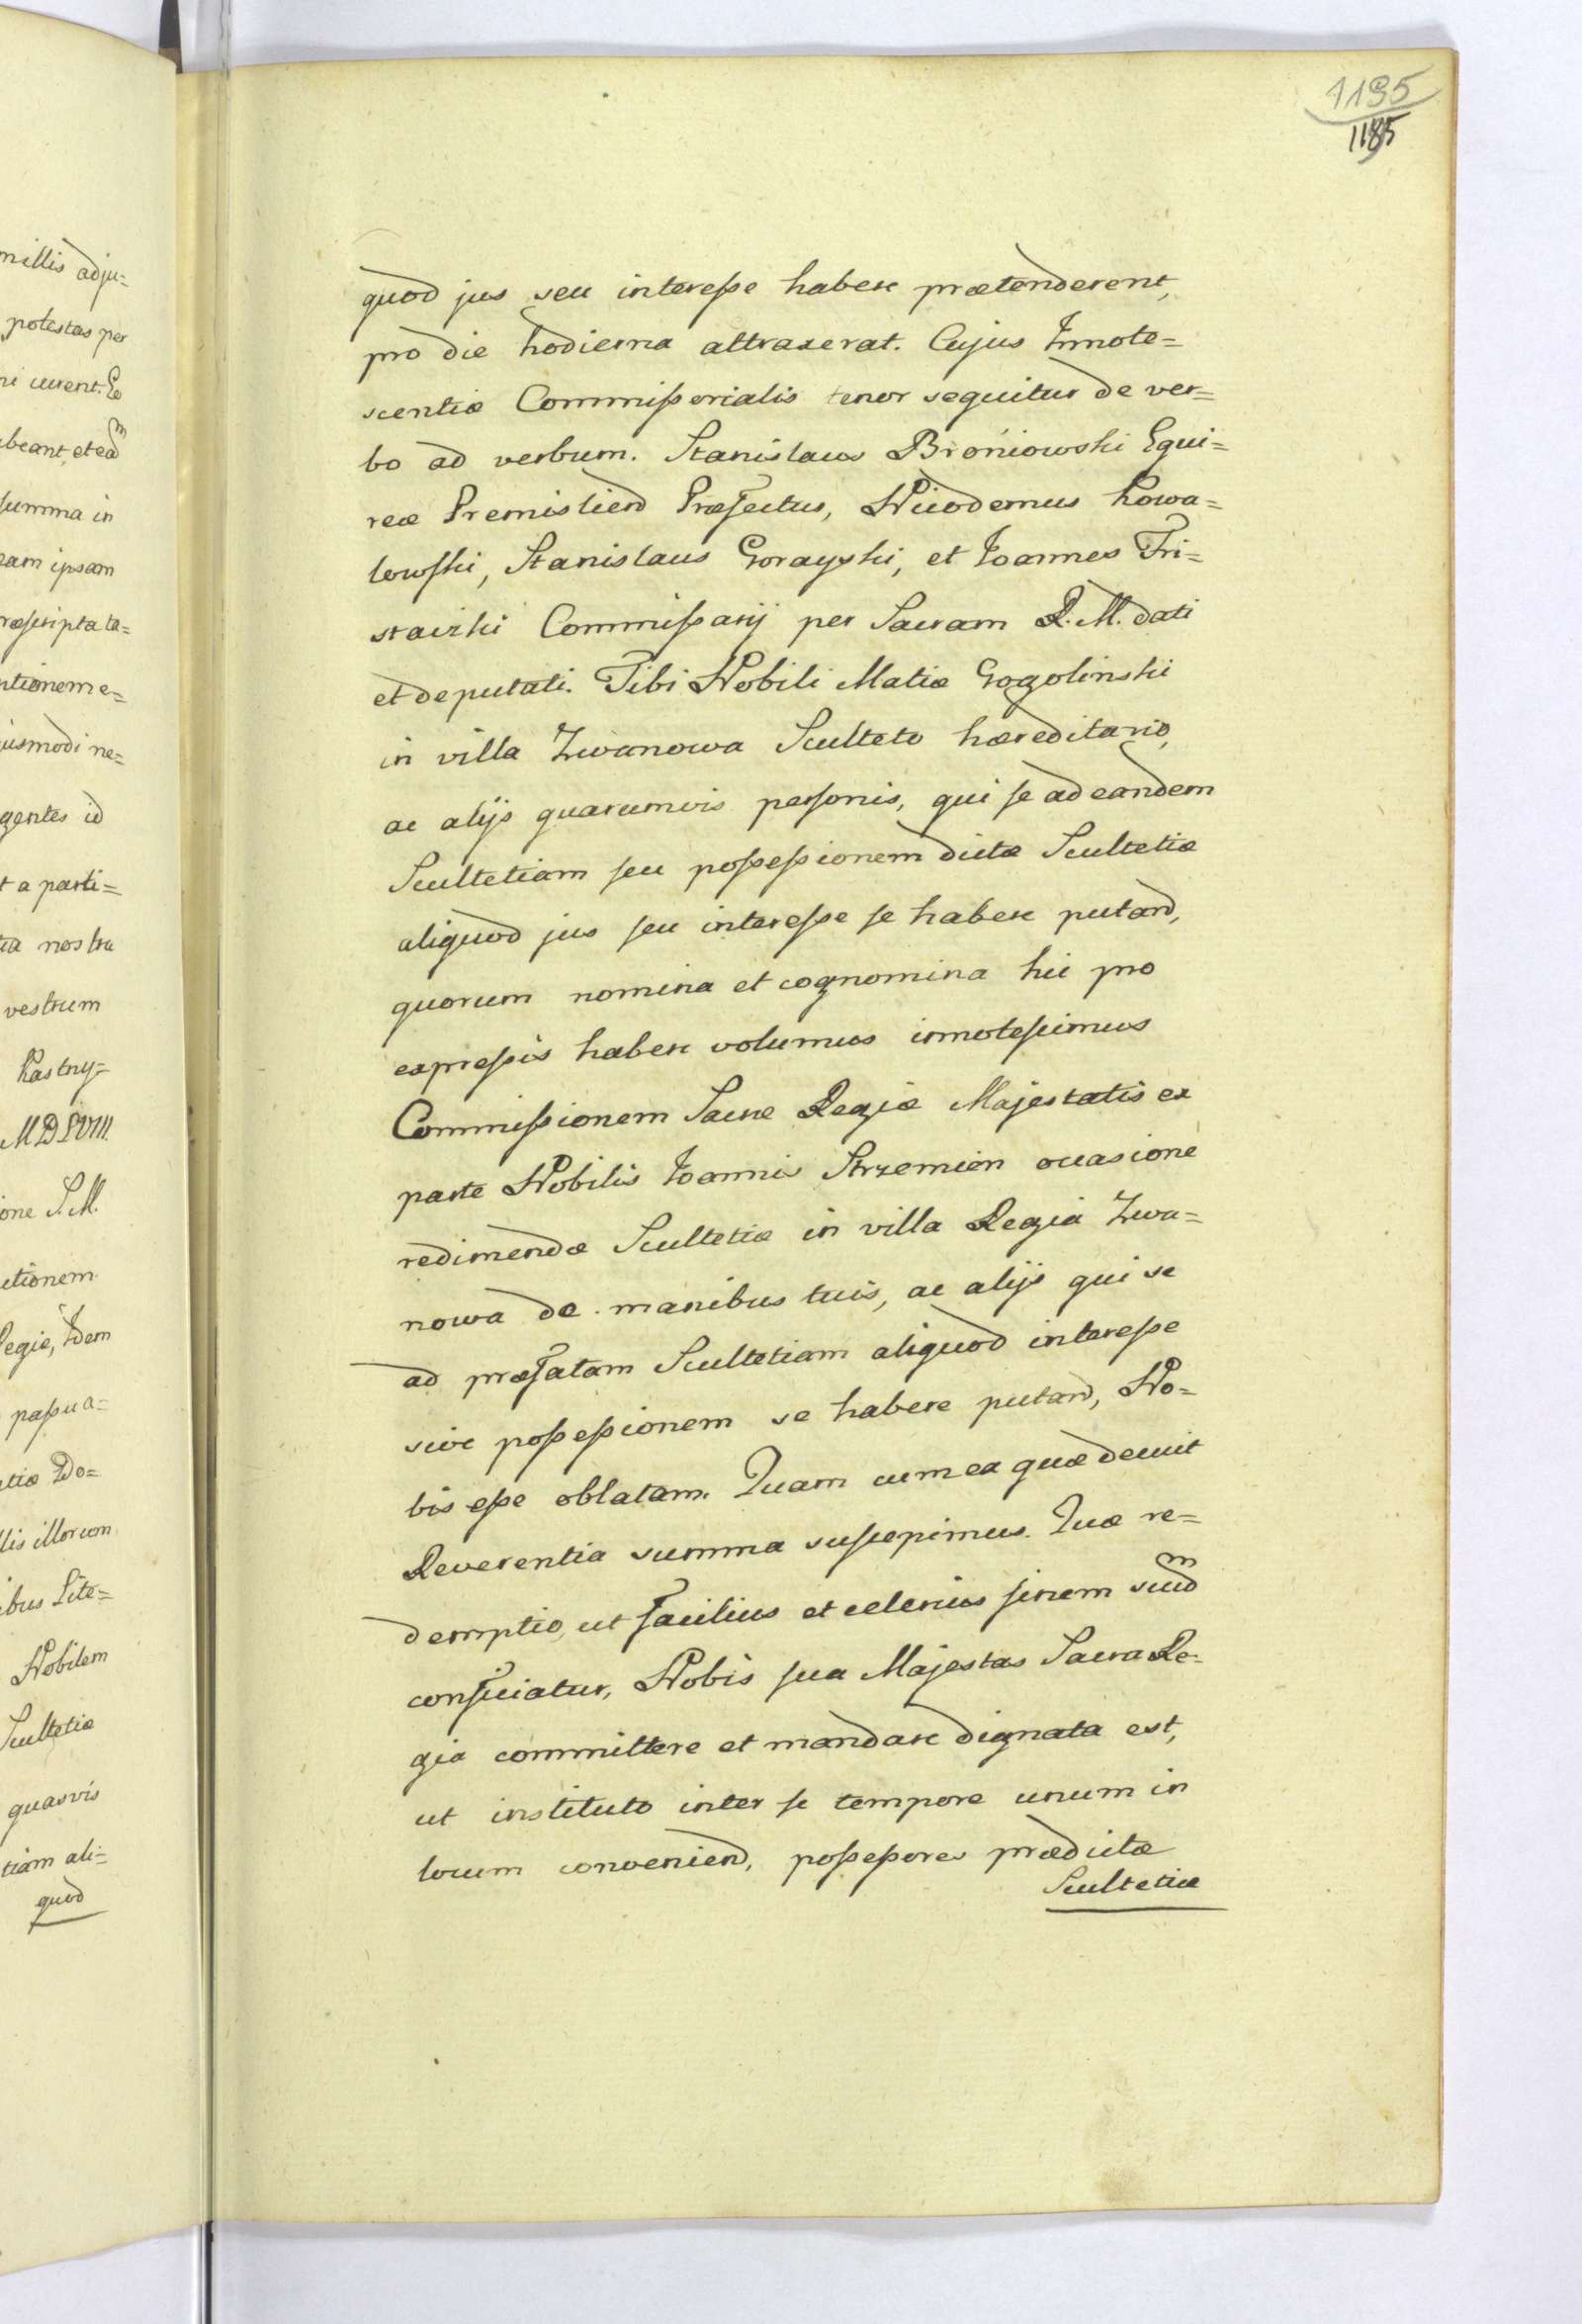 millis adju=
potestas per
ni curent. Ee
beant, et ead m
summa in
ram ipsam
ræscripta ta=
ntionem e=
iusmodi ne=
gentes id
t a parti=
tia nostra
vestrum
Kastny=
MDLVIII.
one S. M.
ctionem
Regie, Idem
passua=
tiæ Do=
llis illorum
ibus Lite=
Nobilem
Scultetiæ
quasvis
tiam ali=
quod
1195
1185
quod jus seu interesse habere prætenderent,
pro die hodierna attraxerat. Cujus Innote=
scentiæ Commisserialis tenor sequitur de ver=
bo ad verbum. Stanislaus Broniowski Equi=
reæ Premislien Præfectus, Nicodemus Kowa=
lowski, Stanislaus Grorayski, et Joannes Fri=
staczki Commissarij per Sacram R. M. dati
et deputati. Tibi Nobili Matiæ Gogolinski
in villa Zwanowa Sculteto hæreditario,
ac alijs quarumvis personis, qui se ad eandem
Scultetiam seu possessionem dictæ Scultetiæ
aliquod jus seu interesse se habere putand,
quorum nomina et cognomina hic pro
expressis habere volumus innotescimus
Commissionem Sacræ Regiæ Majestatis ex
parte Nobilis Joannis Strzemien occasione
redimendæ Scultetiæ in villa Regia Zwa=
nowa de manibus tuis, ac alijs qui se
ad præfatam Scultetiam aliquod interesse
sive possessionem se habere putand, No=
bis esse oblatam. Quam cum ea quæ decuit
Reverentia summa suscepimus. Quæ re=
demptio, ut facilius et celerius finem suu m
conficiatur, Nobis sua Majestas Sacra Re=
gia committere et mandare dignata est,
ut instituto inter se tempore unum in
locum convenien, possessores prædictæ
Scultetiæ